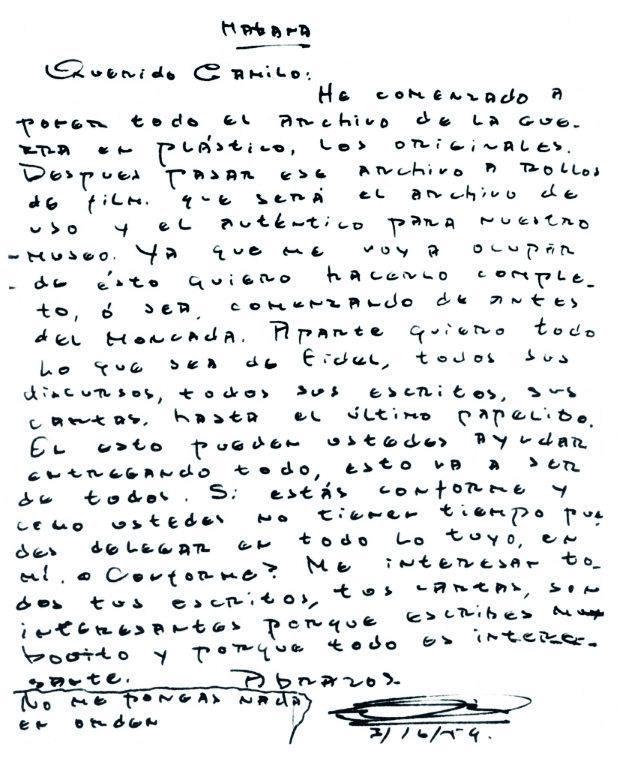 Habana
Querido Camilo:
He comenzado a
poner todo el archivo de la gue-
rra en plástico, los originales.
Despues pasar ese archivo a rollos
de film. que será el archivo de
uso y el auténtico para nuestro
-museo. Ya que me voy a ocupar
- de ésto quiero hacerlo comple-
to, ó sea, comenzando de antes
del Moncada. Aparte quiero todo
lo que sea de Fidel, todos sus
discursos, todos sus escritos, sus
cartas, hasta el último papelito.
En esto pueden ustedes ayudar
entregando todo, esto va a ser
de todos. Si estás conforme y
como ustedes no tienen tiempo pue
des delegar en todo lo tuyo, en
mí. Conforme? Me interesan to-
dos tus escritos, tus cartas, son
interesantes porque escribes muy
bonito y porque todo es intere-
sante. Abrazos.
No me pongas nada
en orden
2/16/59.